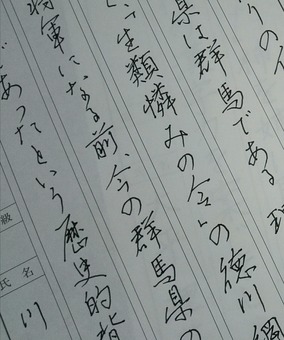 りの
県は群馬である
「生類憐みの令」の徳川綱
将軍になる前、今の群馬県の
であったという歴史的背
級
氏名
川